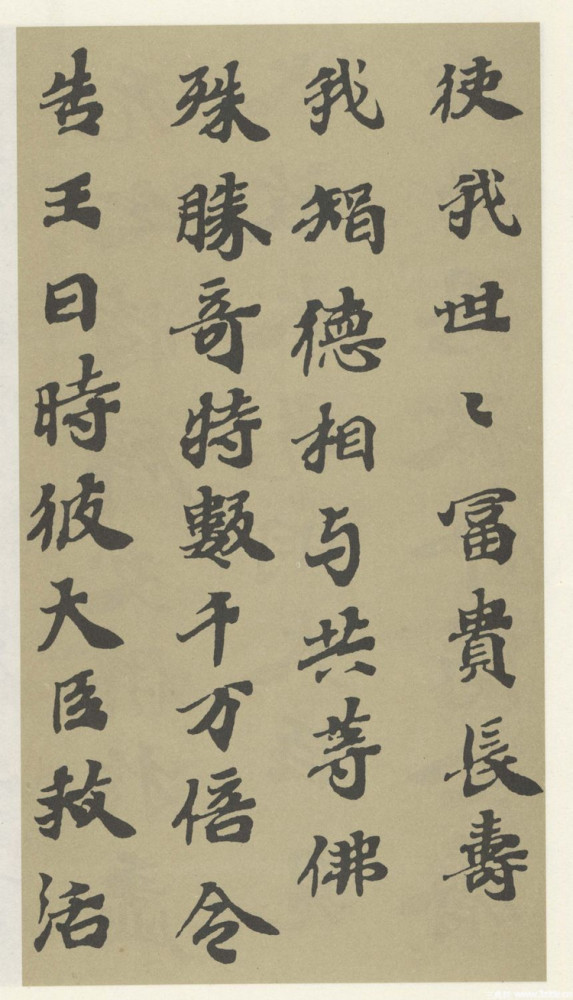 使我世〻冨貴長壽
我智德相与共等佛
殊勝奇特數千万倍令
告王曰時彼大臣救活